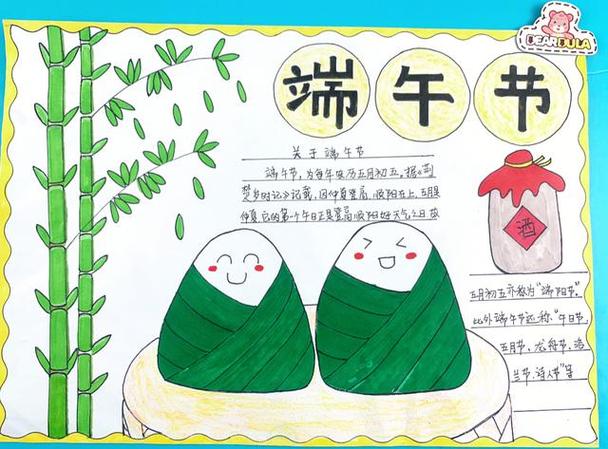 BEARBULA
端午节
关于端午节
端午节，为每年农历五月初五。据《荆
楚岁时记》记载，因仲夏登高，顺阳在上，五月是
仲夏，它的第一个午日正是登高顺阳好天气之日，故
酒
五月初五亦称为“端阳节”。
此外端午节还称“午日节，
五月节，龙舟节，浴
兰节，诗人节”等